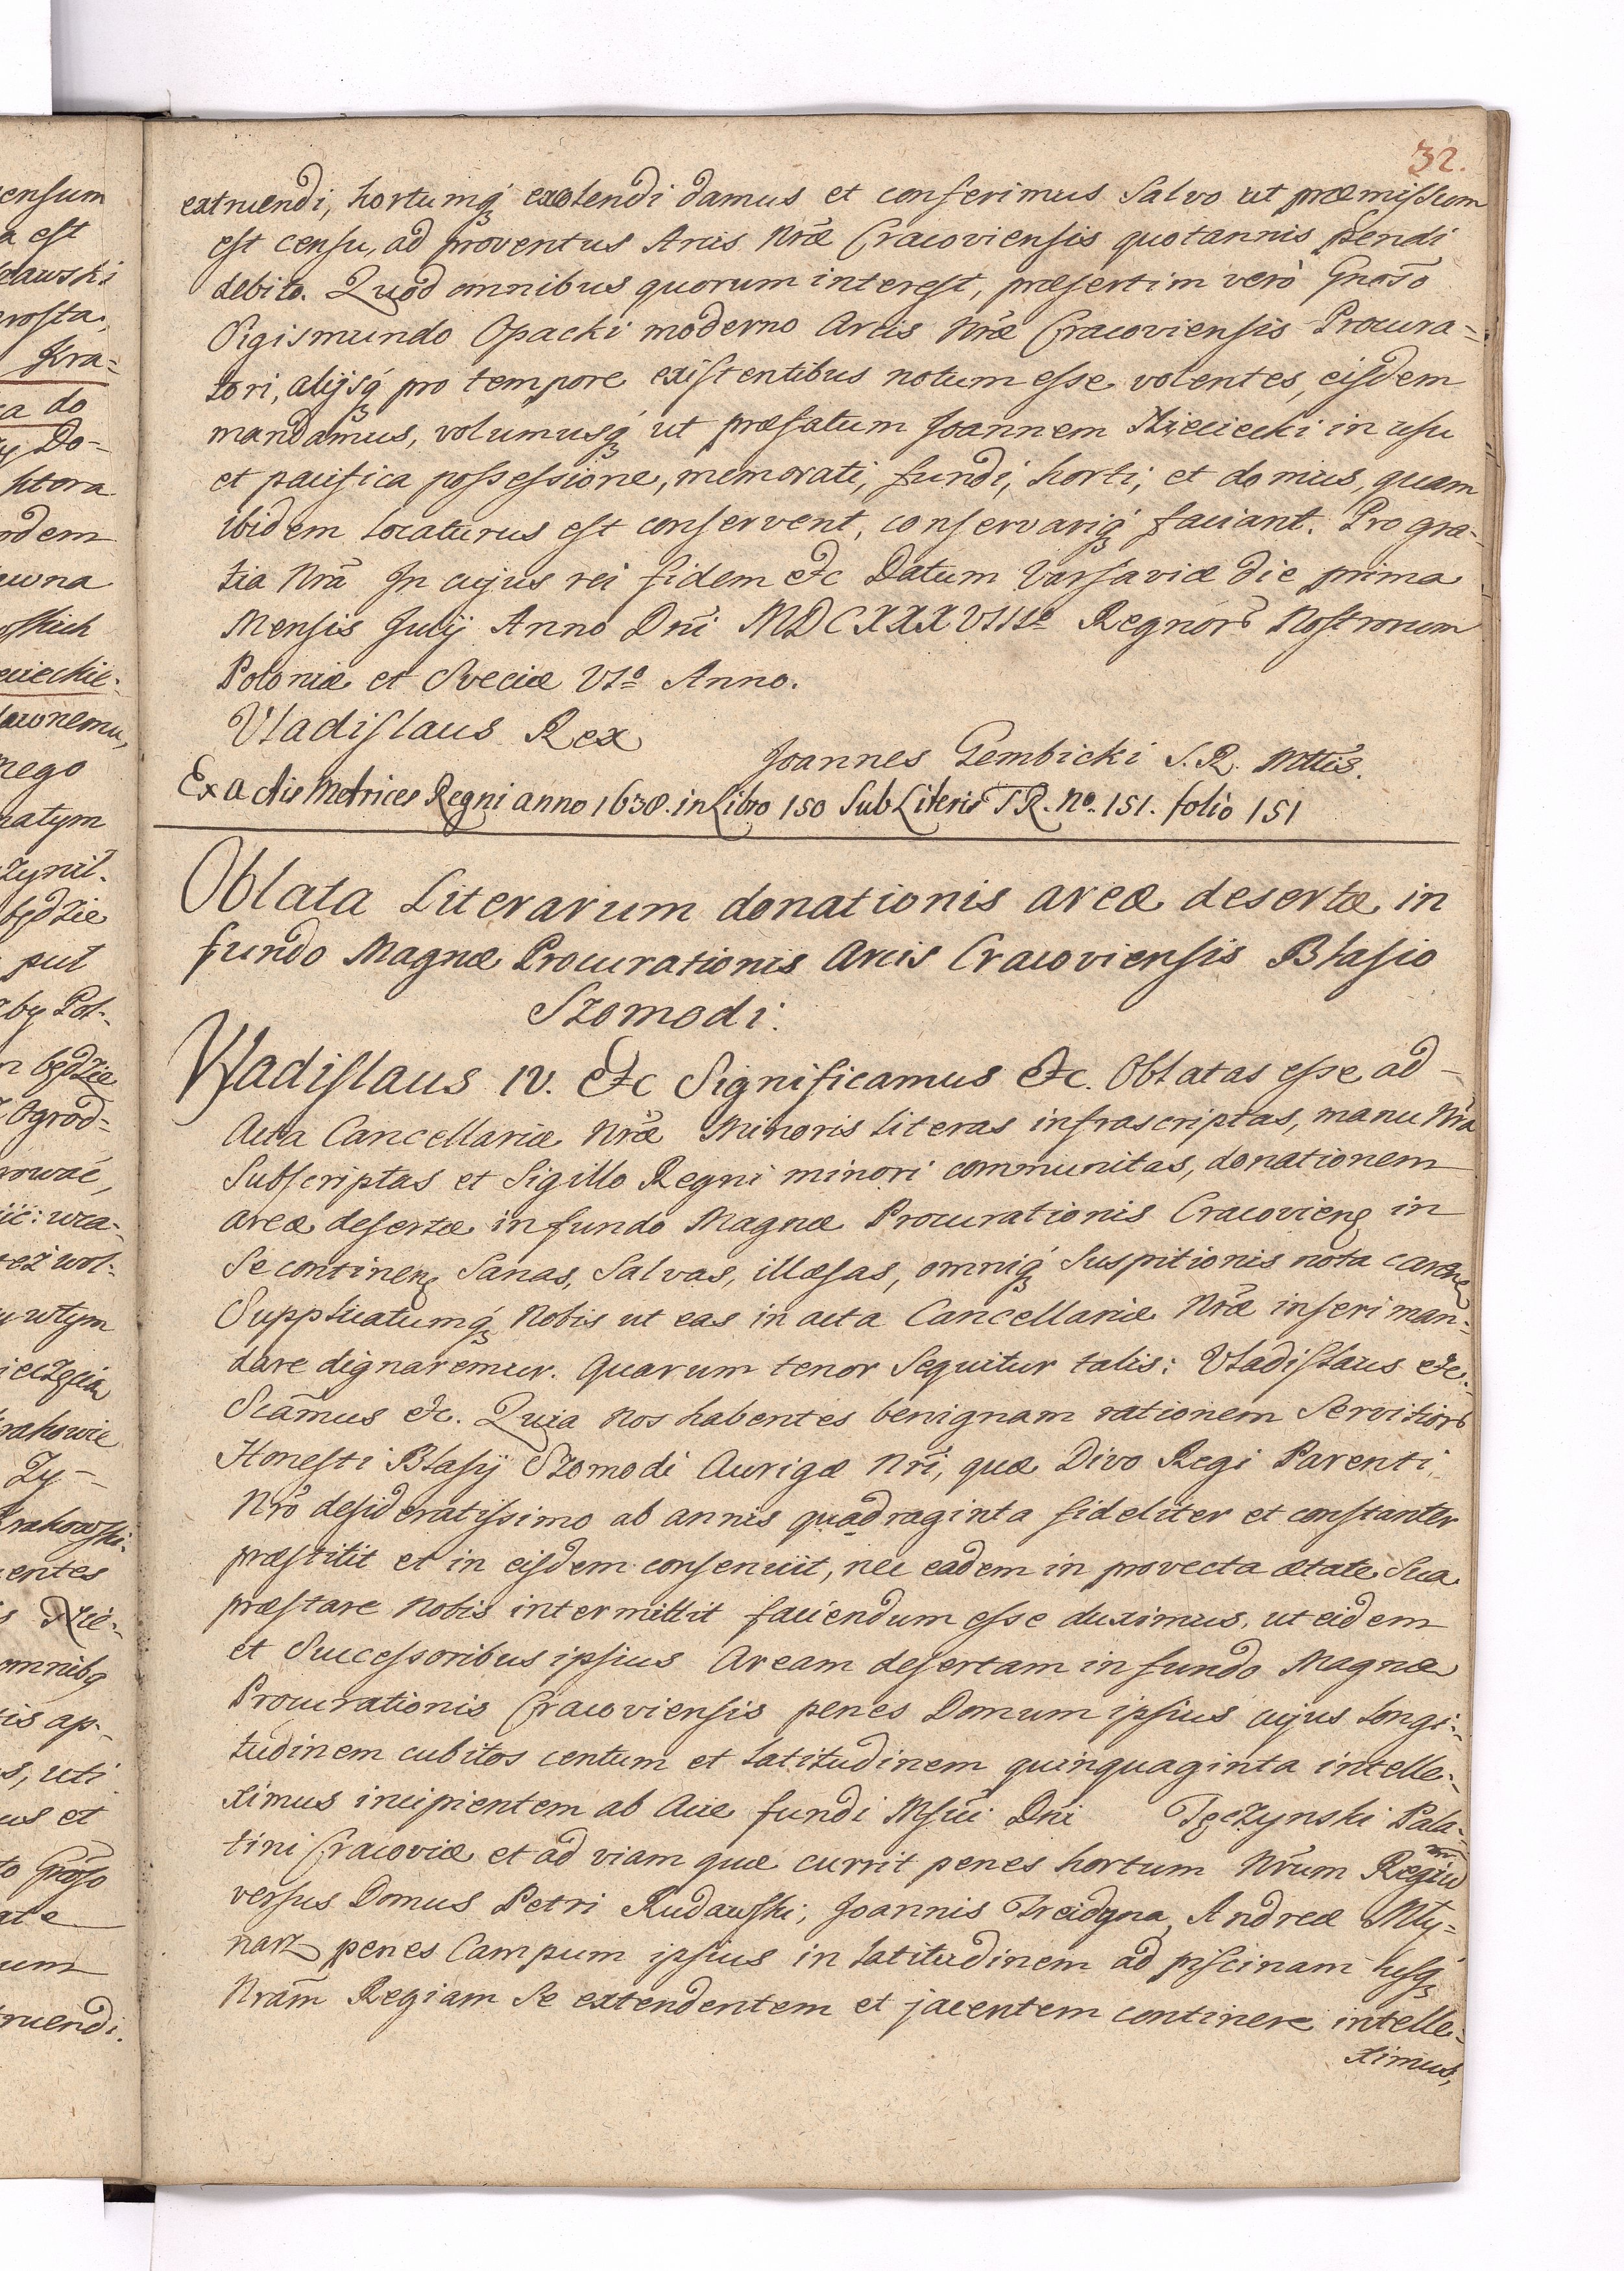 32.
extruendi, hortumq́ꝫ excolendi damus et conferimus Salvo ut præmissum
est censu, ad proventus Arcis Nræ Cracoviensis quotannis pendi
debito. Quod omnibus quorum interest, præsertim verò Gnoso
Sigismundo Opacki moderno Arcis Nræ Cracoviensis Procura=
tori, alijsq́ꝫ pro tempore existentibus notum esse volentes, eisdem
mandamus, volumusq́ꝫ ut præfatum Joannem in usu
et pacifica possessione, memorati, fundi, horti, et domus, quam
ibidem locaturus est conservent, conservariq́ꝫ faciant. Pro gra-
tia Nrã In cujus rei fidem etc Datum Varsaviæ die prima
Mensis Julij Anno Dni MDCXXXVIIIo Regnorũ Nostrorum
Poloniæ et Sveciæ VIo Anno.
Vladislaus Rex
Joannes Gembicki S. R. Mttis.
Ex actis Metrices Regni anno 1638. in Libro 150 Sub Literis TR. No. 151. folio 151
Oblata Literarum donationis areæ desertæ in
fundo Magnæ Procurationis Arcis Cracoviensis Blasio
Szomodi.
Vladislaus IV. etc Significamus etc. Oblatas esse ad
Acta Cancellariæ Nræ Minoris literas infrascriptas, manu Nra
Subscriptas et Sigillo Regni minori communitas, donationem
areæ desertæ in fundo Magnæ Procurationis Cracovienꝫ in
Se continenꝫ Sanas, Salvas, illæsas, omniq́ꝫ Suspitionis nota carenꝫ
Supplicatumq́ꝫ Nobis ut eas in acta Cancellariæ Nræ inseri man=
dare dignaremur. Quarum tenor Sequitur talis: Vladislaus etc.
Scãmus etc. Quia Nos habentes benignam rationem Servitiorũ
Honesti Blasij Szomodi Aurigæ Nri, quæ Divo Regi Parenti
Nro desideratissimo ab annis quadraginta fideliter et constanter
præstitit et in eisdem consenuit, nec eadem in provecta ætate Sua
præstare Nobis intermittit faciendum esse duximus, ut eidem
et Successoribus ipsius Aream desertam in fundo Magnæ
Procurationis Cracoviensis penes Domum ipsius cujus longi=
tudinem cubitos centum et latitudinem quinquaginta intelle=
ximus incipientem ab Acie fundi Msci Dni Tęczynski Pala=
tini Cracoviæ et ad viam quæ currit penes hortum Nrum Regiũ
versus Domus Petri Rudawski, Joannis Treidyna, Andreæ Mły=
narz penes Campum ipsius in latitudinem ad piscinam usqꝫ
Nram Regiam Se extendentem et jacentem continere intelle=
ximus,